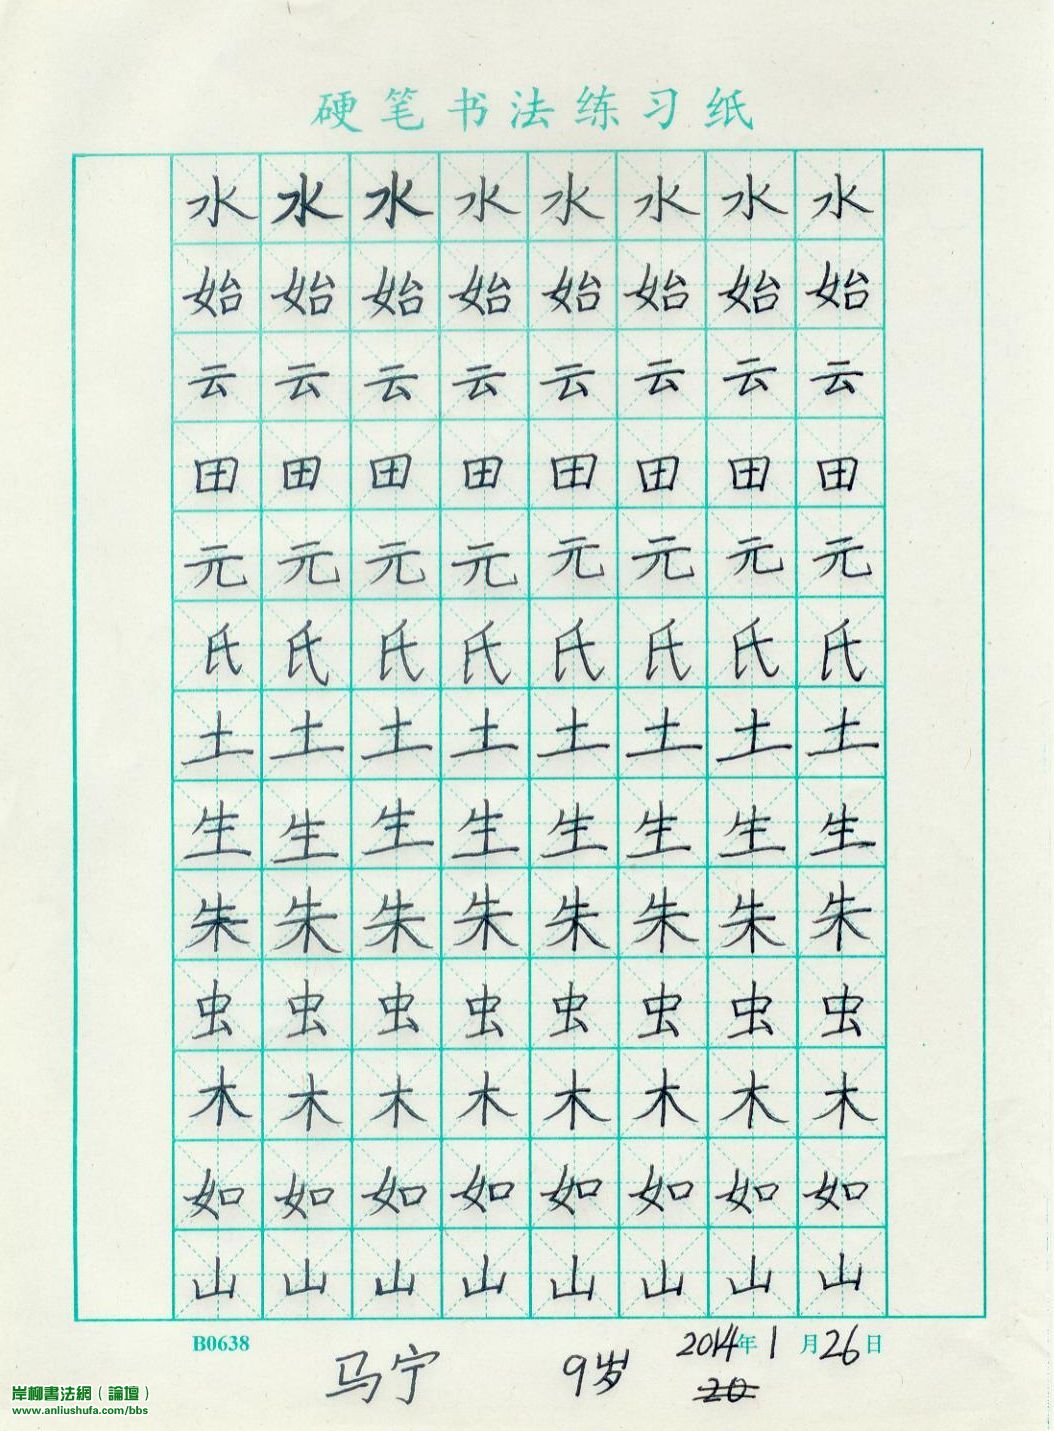 硬笔书法练习纸
水水水水水水水水
始始始始始始始始
云云云云云云云云
田田田田田田田田
元元元元元元元元
氏氏氏氏氏氏氏氏
土土土土土土土土
生生生生生生生生
朱朱朱朱朱朱朱朱
虫虫虫虫虫虫虫虫
木木木木木木木木
如如如如如如如如
山山山山山山山山
B0638 马宁 9岁 2014年1月26日
20
岸柳書法網（論壇）
www.anliushufa.com/bbs